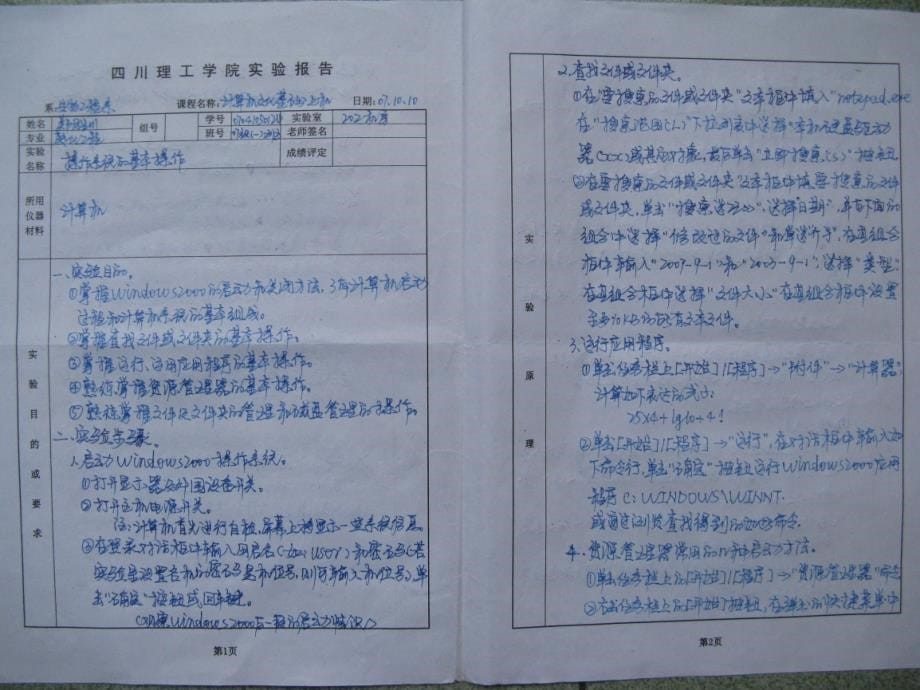 四川理工学院实验报告
系: 课程名称:计算机文化基础上机 日期:07.10.10
姓名 组号 学号 实验室
专业 班号 老师签名
实验名称 操作系统的基本操作 成绩评定
所用仪器材料 计算机
实验目的或要求
一、实验目的。
①掌握Windows2000的启动和关闭方法,了解计算机启动
过程和计算机系统的基本组成。
②掌握查找文件或文件夹的基本操作。
③掌握运行、应用程序的基本操作。
④熟练掌握资源管理器的基本操作。
⑤熟练掌握文件及文件夹的管理和磁盘管理的操作。
二、实验步骤。
1.启动Windows2000操作系统。
①打开显示器及外围设备开关。
②打开主机电源开关。
注:计算机首先进行自检,屏幕上将显示一些系统信息。
③在登录对话框中输入用户名(如user)和密码(若
实验室设置各机的密码是机位号,则可输入机位号),单
击"确定"按钮或回车键。
第1页
实验原理
2.查找文件或文件夹。
①在要搜索的文件或文件夹"文本框中填入"notepad.exe
在"搜索范围(L)"下拉列表中选择"本机硬盘驱动
器 或其他对象,最后单击"立即搜索(S)"按钮
②在要搜索的文件或文件夹"文本框中填要搜索的文件
或文件夹,单击"搜索选项>>",选择"日期",并在下面的
组合中选择"修改过的文件"和单选 ,在其组合
框中输入"2007-9-1"和 选择"类型"
在其组合框选择"文件大小"在其组合框设置
至要10KB的所有文本文件。
3.运行应用程序。
①单击任务栏上[开始]/[程序]→"附件"→"计算器"
计算如下表达式
25×4+lg10+4!
②单击[开始]/[程序]→"运行",在对话框中输入如
下命令行,单击"确定"按钮运行Windows2000应用
程序C:WINDOWS\WINNT.
或通过浏览查找得到的 命令.
4.资源管理器常用的n种启动方法。
①单击任务栏上的[开始]/[程序]→"资源管理器"命令
②右击任务栏上的[开始]按钮,在弹出的快捷菜单中
第2页